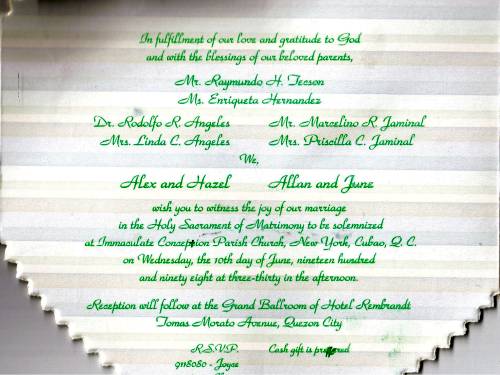 In fulfillment of our love and gratitude to God
and with the blessings of our beloved parents,
Mr. Raymundo H. Tecson
Ms. Enriqueta Hernandez
Dr. Rodolfo R. Angeles Mr. Marcelino R. Jaminal
Mrs. Linda C. Angeles Mrs. Priscilla C. Jaminal
We,
Alex and Hazel Allan and June
wish you to witness the joy of our marriage
in the Holy Sacrament of Matrimony to be solemnized
at Immaculate Conception Parish Church, New York, Cubao, Q. C.
on Wednesday, the 10th day of June, nineteen hundred
and ninety eight at three-thirty in the afternoon.
Reception will follow at the Grand Ballroom of Hotel Rembrandt
Tomas Morato Avenue, Quezon City
R.S.V.P. Cash gift is preferred
9118080 - Joyce